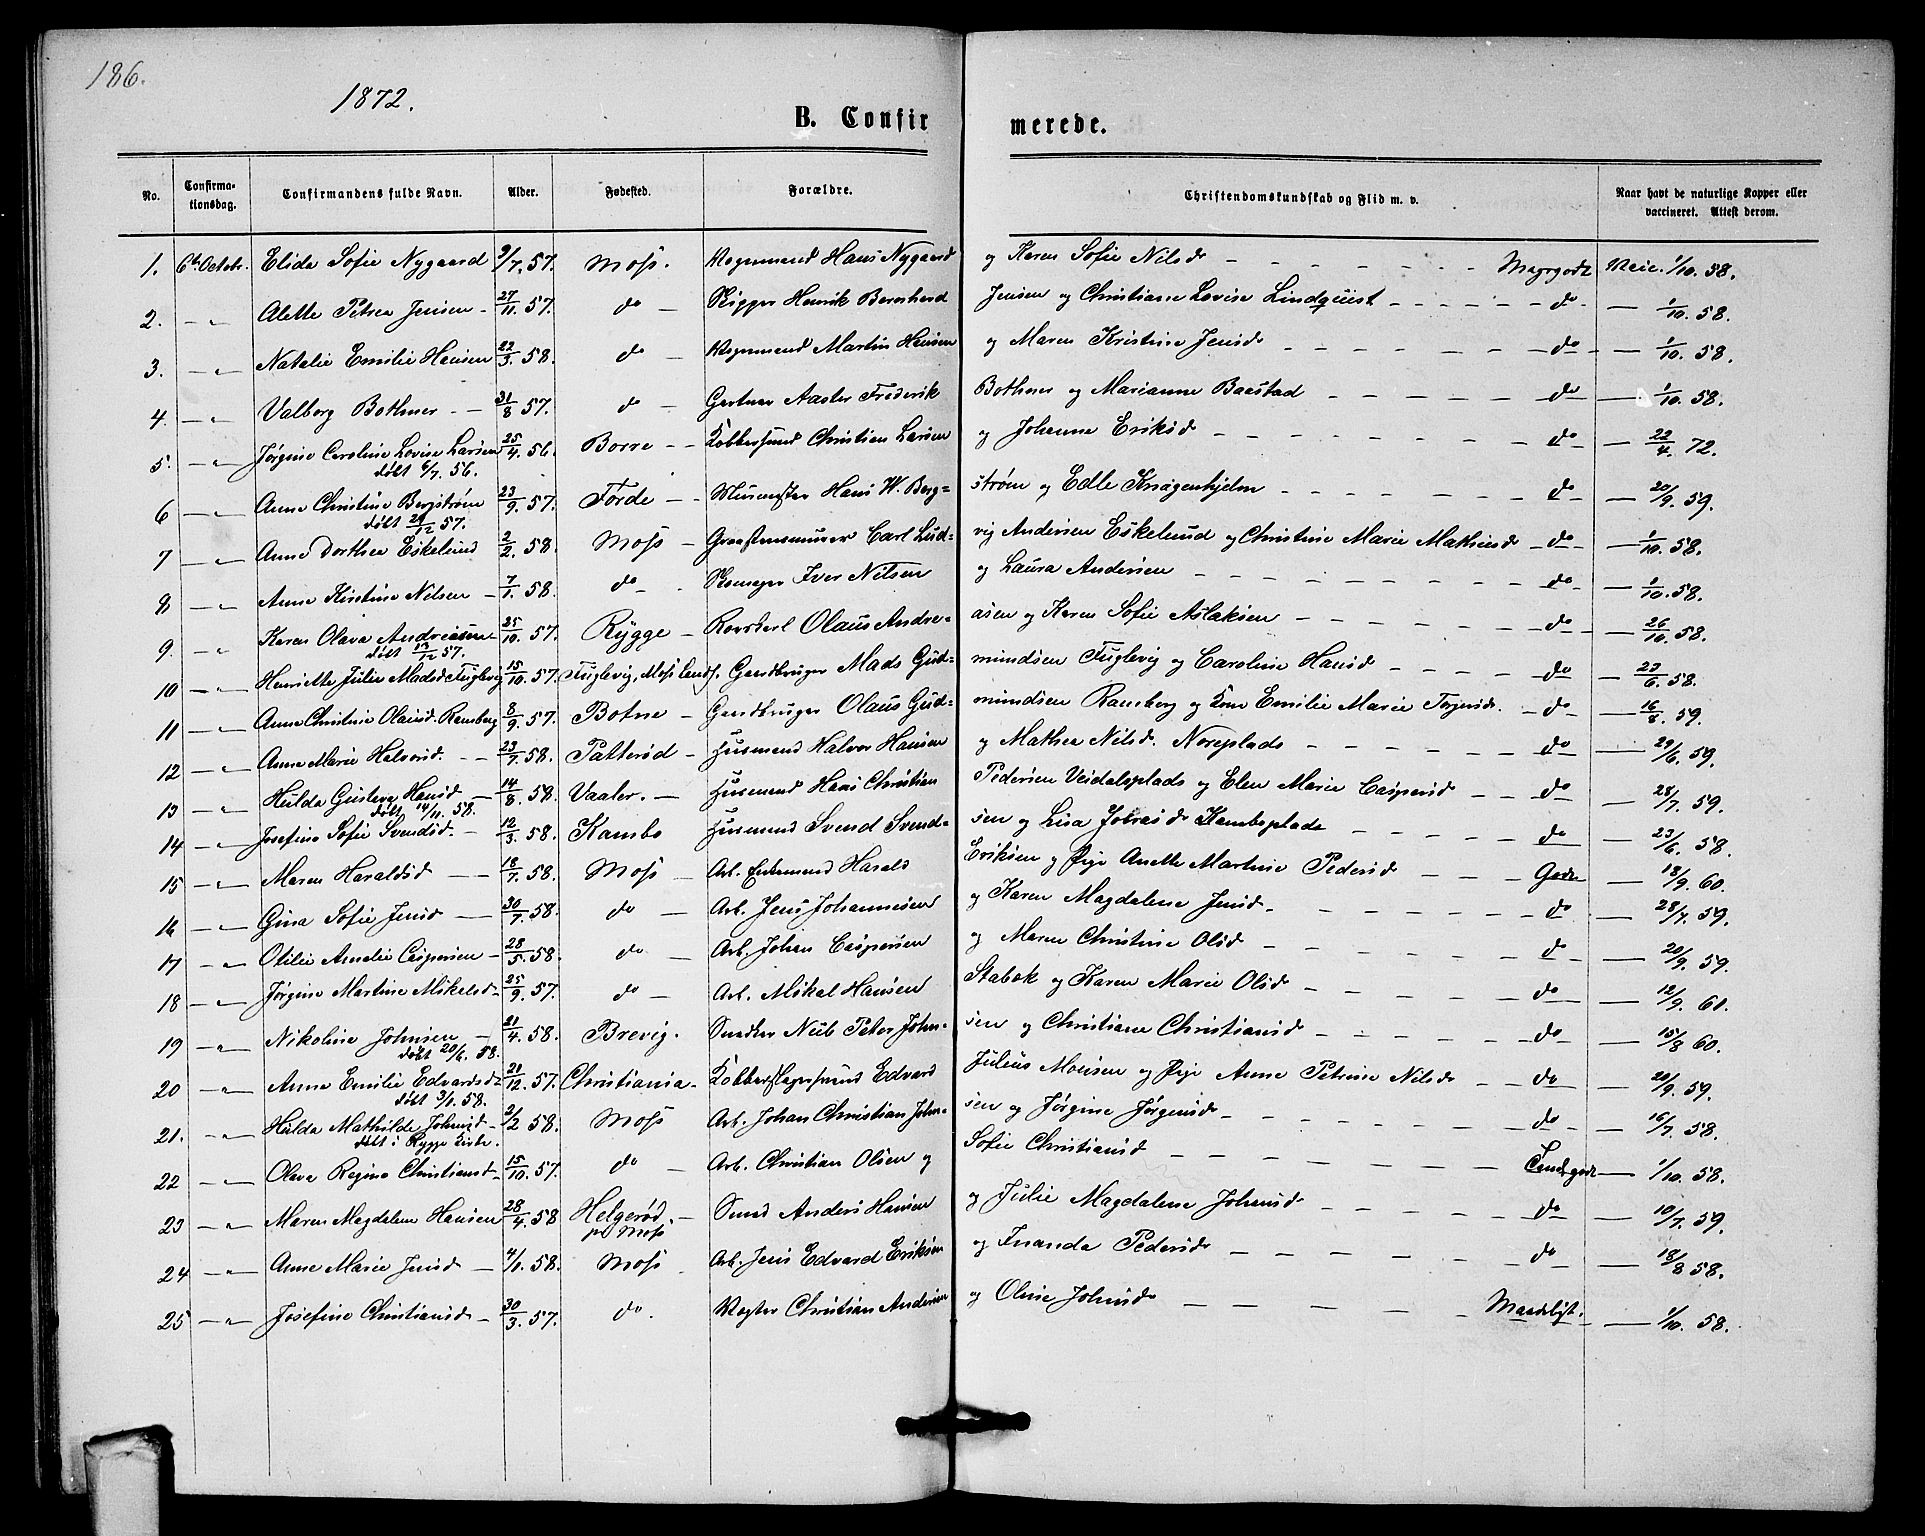 186.
1872.
B. Confirmerede.
No. Confirmationsdag. Confirmandens fulde Navn. Alder. Fødested. Forældre. Christendomskundskab og Flid m. v. Naar havt de naturlige Kopper eller vaccineret. Attest derom.
1. 6te Octobr. Elida Sofie Nygaard 9/7. 57. Moss. Vognmand Hans Nygaard og Karen Sofie Nilsd. – Megetgodt Vacc. 1/10. 58.
2. – " Alette Petrea Jensen – 27/11. 57. do – Skipper Henrik Bernhard Jensen og Christiane Lovise Lindquist – do – 1/10. 58.
3. – " Natalie Emilie Hansen 22/3. 58. do – Vognmand Martin Hansen og Maren Kristine Jensd. – do – 1/10. 58.
4. – " Valborg Bothner – 31/8 57. do – Gartner Frederik Bothner og Marianne Baastad – do – 1/10. 58.
5. – " Jørgine Caroline Lovise Larsen 25/4. 56. Borre – Kobbersmed Christian Larsen og Johanne Eriksd. – do – 22/4. 72.
døbt 6/7. 56.
6 – " Anne Christine Bergstrøm 23/9. 57. Førde – Hans W. Bergstrøm og Edle Knagenhjelm – do – 20/9. 59.
døbt 26/12 57.
7 – " Anne Dorthea Eskelund 2/2. 58. Moss – Graastensmurer Carl Ludvig Andersen Eskelund og Christine Marie Mathisd. – do – 1/10. 58.
8 – " Anne Kirstine Nilsen – 7/1. 58. do – Skomager Iver Nilsen og Laura Andersen – do – 1/10. 58.
9. – " Karen Olava Andreasen 25/10. 57. Rygge – Olaus Andreasen og Karen Sofie Aslaksen – do – 26/10. 58.
døbt 13/12 57.
10 – " Henriette Julie Madsd. Fuglevig 15/10. 57. Fuglevig, Moss lands. Gaardbruger Mads Gudmundsen Fuglevig og Caroline Hansd. – do – 23/6. 58.
11 – " Anne Christine Olausd. Ramberg 8/9. 57. Botne – Gaardbruger Olaus Gudmundsen Ramberg og Kone Emilie Marie Torgersd. – do – 16/8. 59.
12 – " Anne Marie Halvorsd. – 23/7. 58. Patterød – Husmand Halvor Hansen og Mathea Nilsd. Noreplads – do – 29/6. 59.
13 – " Hulda Gustava Hansd. – 14/8. 58. Vaaler. – Husmand Hans Christian Pedersen Veidalsplads og Elen Marie Caspersd. – do – 28/7. 59.
døbt 14/11. 58.
14 – " Josefine Sofie Svendsd. – 12/3. 58. Kambo Husmand Svend Svendsen og Lisa Johansd. Kamboplads – do – 23/6. 58.
15 – " Maren Haraldsd. – 18/7. 58. Moss – Arb. Enkemand Harald Eriksen og Pige Anette Martine Pedersd. – Godt – 18/9. 60.
16 – " Gina Sofie Jensd. – 30/7. 58. do – Arb. Jens Johannesen og Karen Magdalene Jensd. – do – 28/7. 59.
17 – " Otilie Amalie Caspersen – 28/5. 58. do – Arb. Johan Caspersen og Maren Christine Olsd. – do – 20/9. 59.
18 – " Jørgine Martine Mikelsd. 25/9. 57. do – Arb. Mikal Hansen Stabek og Karen Marie Olsd. – do – 12/9. 60.
19 – " Nikoline Johnsen – 21/4. 58. Brevig. – Snedker Neub Peter Johnsen og Christiane Christiansd. – do – 15/8 60.
døbt 20/6. 58.
20 – " Anne Emilie Edvardsd. 21/12. 57. Christiania. Kobberslagersvend Edvard Julius Monsen og Pige Anne Petrine Nilsd. – do – 20/9. 59.
døbt 3/1. 58.
21. – " Hulda Mathilde Johnsd. – 2/2 58. Moss Arb. Johan Christian Johnsen og Jørgine Jørgensd. – do – 16/7. 58.
døbt i Rygge Kirke.
22 – " Olava Regine Christiansd. 15/10. 57. do – Arb. Christian Olsen og Sofie Christiansd. – Temlgodt – 1/10. 58.
23 – " Maren Magdalene Hansen 28/4. 58 Helgerød – Smed Anders Hansen og Julie Magdalene Johansd. – do – 10/7. 59.
pr Moss
24 – " Anne Marie Jensd. – 4/1. 58. Moss Arb. Jens Edvard Eriksen og Inanda Pedersd. – do – 18/8 58.
25 – " Josefine Christiansd. – 30/3. 57. do. Vogter Christian Andersen og Oline Johnsd. – Maadeligt. – 1/10. 58.